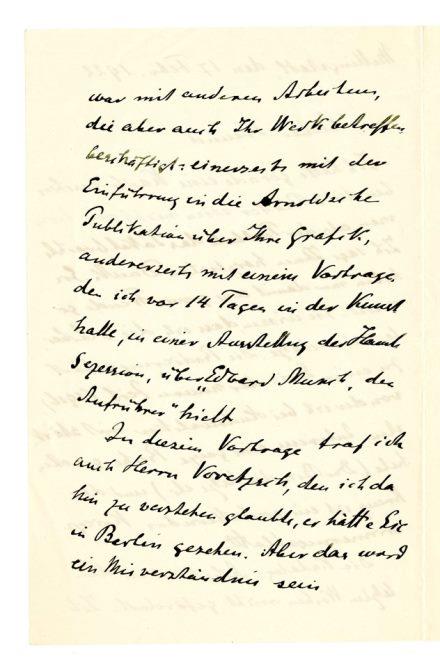 war mit anderen Arbeiten,
die aber auch Ihr Werk betreffen
beschäftigt: einerseits mit der
Einführung in die Arnoldsche
Publikation über Ihre Grafik,
andererseits mit einem Vortrage
den ich vor 14 Tagen in der Kunst
halle, in einer Ausstellung der Hamb
Sezession, über "Edvard Munch, der
Aufrührer" hielt
In diesem Vortrage traf ich
auch Herrn Voretzsch, den ich da
hin zu verstehen glaubte, er hätte Sie
in Berlin gesehen. Aber das ward
ein Misverständnis sein